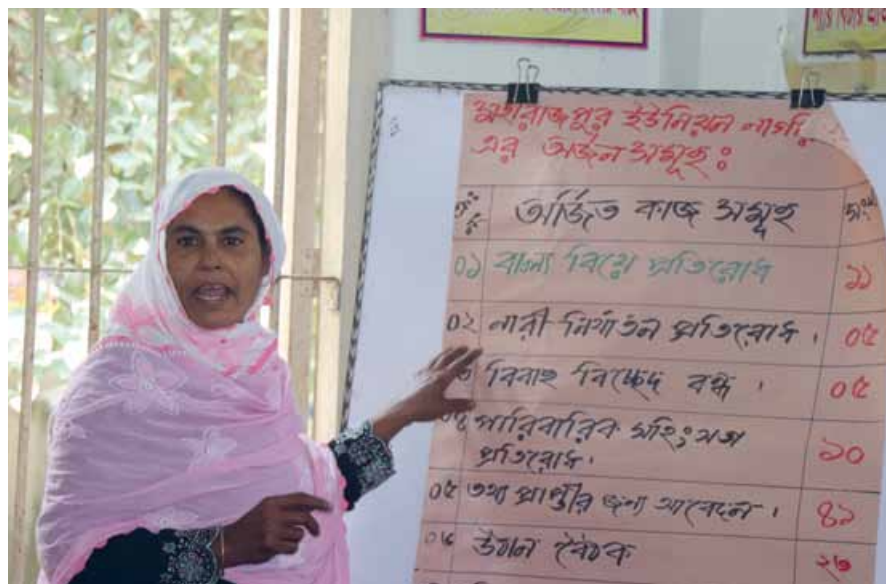 মহারাজপুর ইউনিয়ন নারী
এর অর্জন সমূহ:
অর্জিত কাজ সমূহ
০১ বাল্য বিয়ে প্রতিরোধ ১১
০২ নারী নির্যাতন প্রতিরোধ। ০৫
বিবাহ বিচ্ছেদ বন্ধ। ০৫
পারিবারিক সহিংসতা
প্রতিরোধ। ১০
০৫ তথ্য প্রাপ্তীর জন্য আবেদন। ৪১
০৬ উঠান বৈঠক ২৬